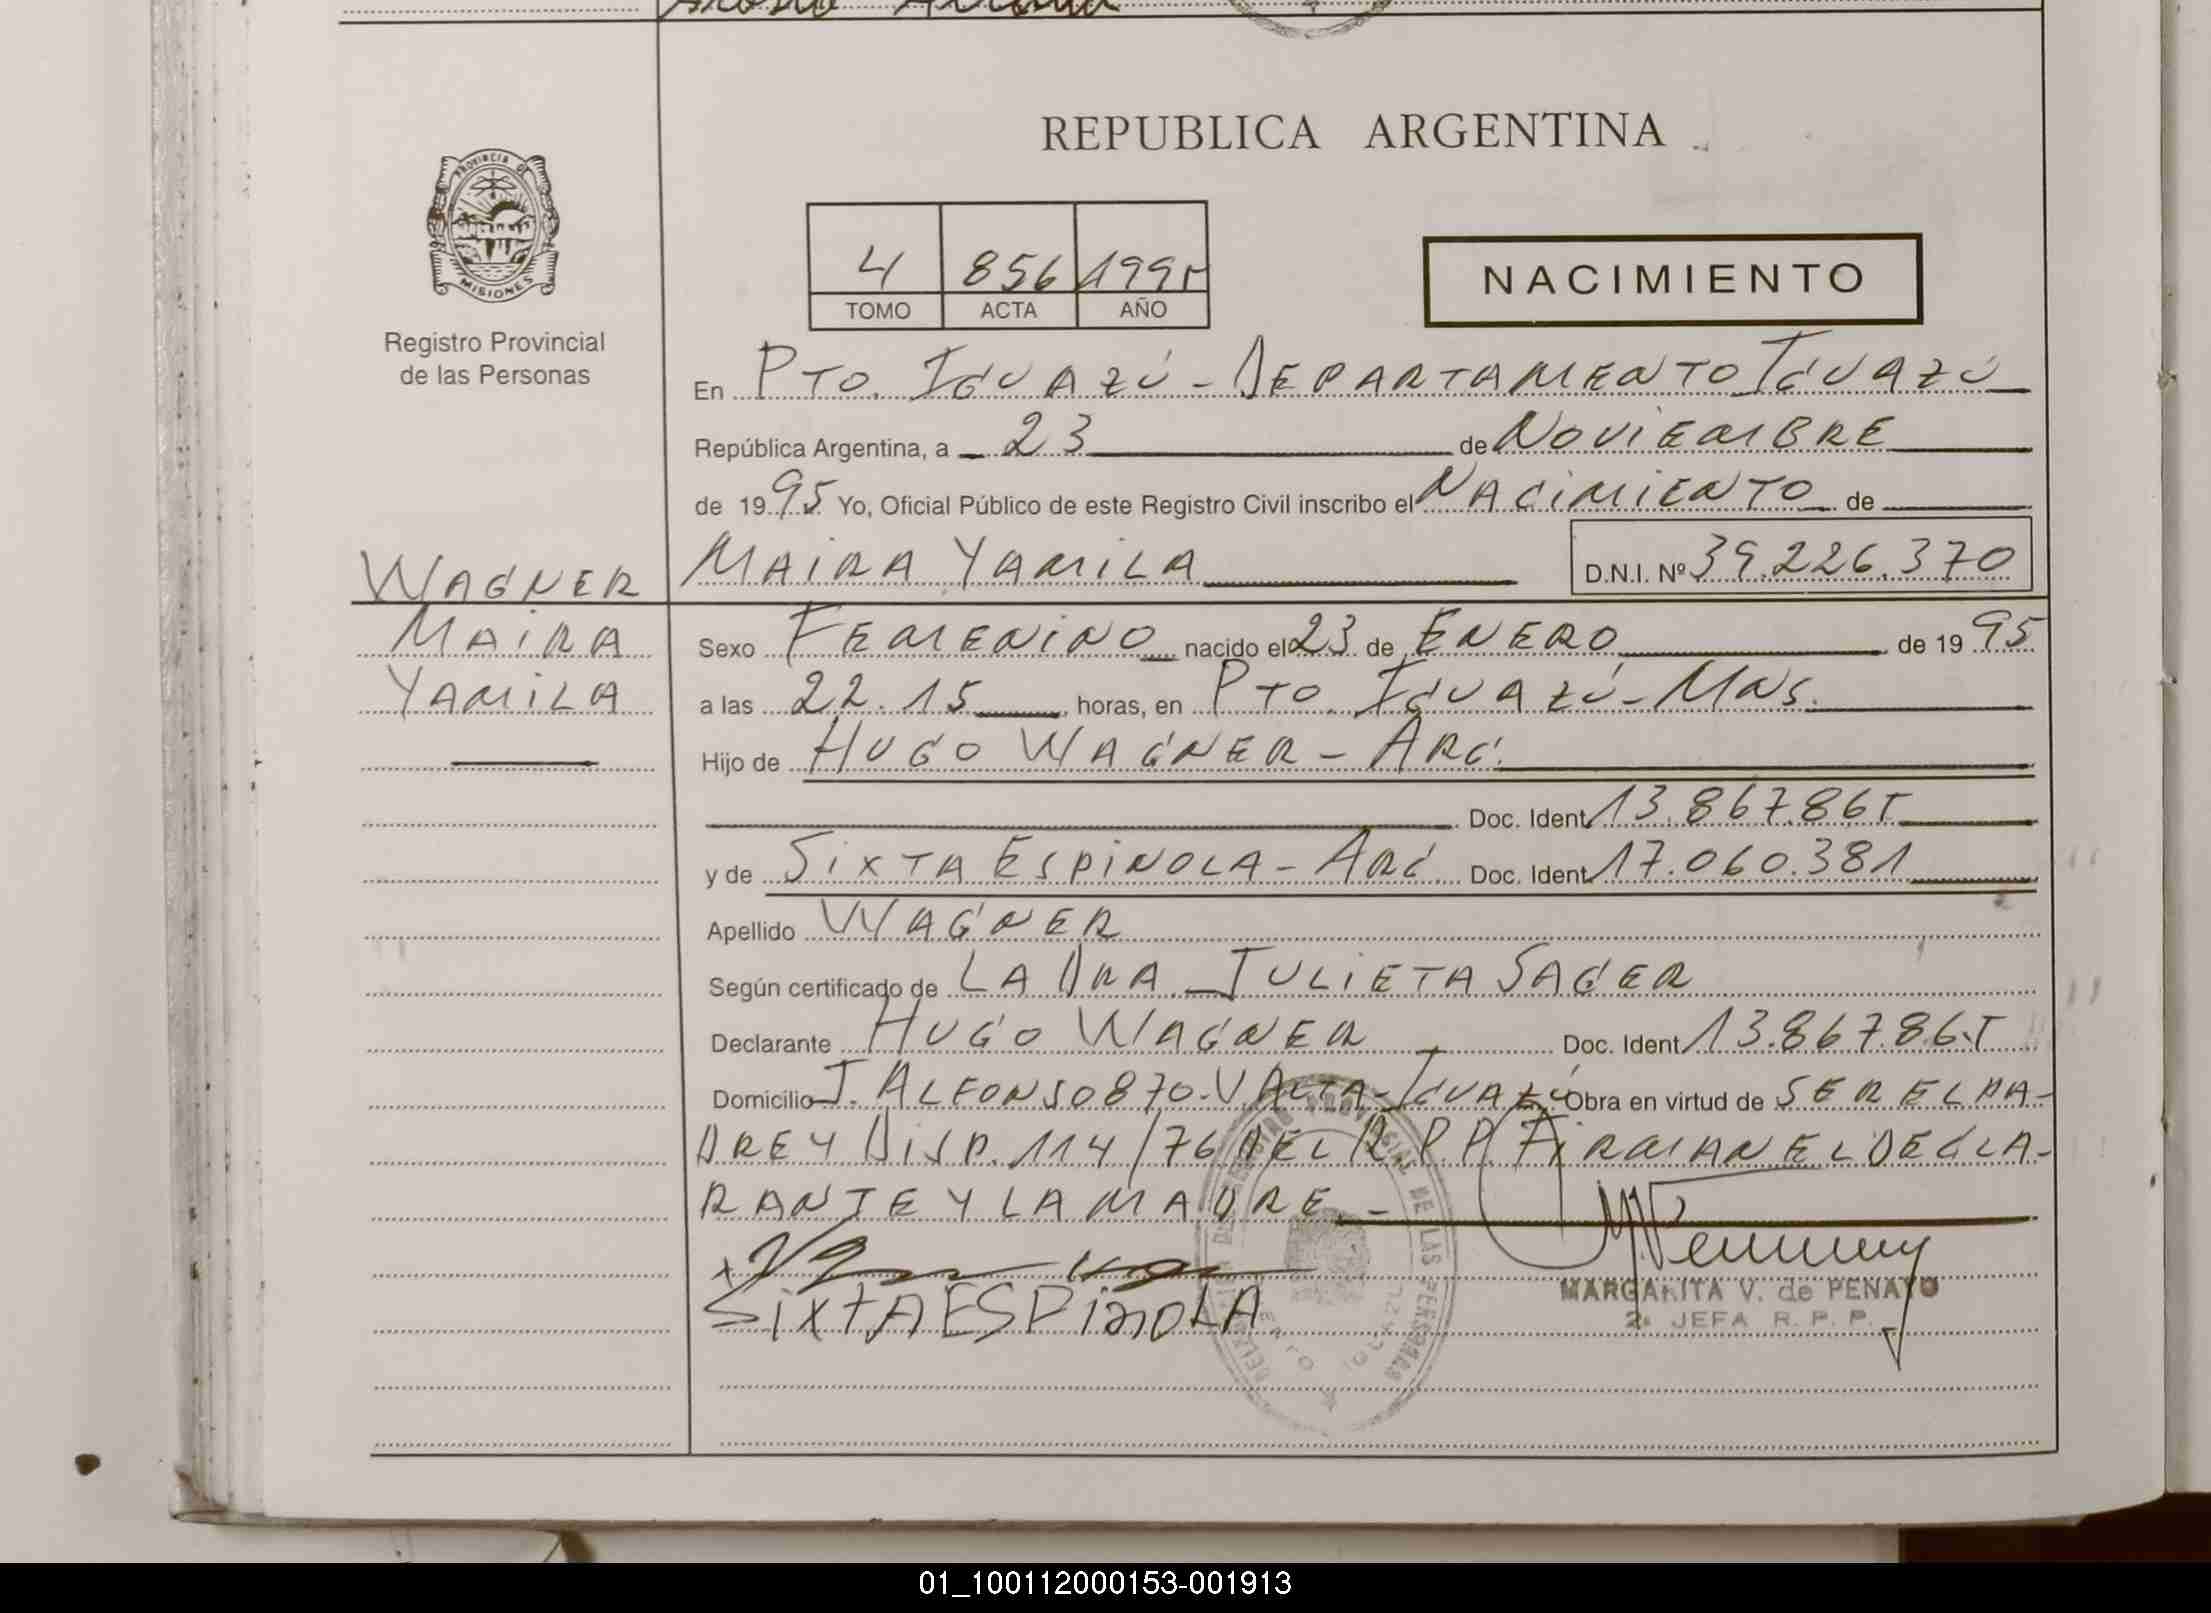 REPUBLICA ARGENTINA
PROVINCIA DE
MISIONES
Registro Provincial
de las Personas
4 856 1995
TOMO ACTA AÑO
NACIMIENTO
En PTO. IGUAZÚ - DEPARTAMENTO IGUAZÚ
República Argentina, a 23 de NOVIEMBRE
de 1995 Yo, Oficial Público de este Registro Civil inscribo el NACIMIENTO de
WAGNER
MAIRA YAMILA D.N.I. Nº 39.226.370
MAIRA
YAMILA
Sexo FEMENINO nacido el 23 de ENERO de 1995
a las 22.15 horas, en PTO. IGUAZÚ - MNS.
Hijo de HUGO WAGNER - ARG.
Doc. Ident. 13.867.865
y de SIXTA ESPINOLA - ARG Doc. Ident. 17.060.381
Apellido WAGNER
Según certificado de LA DRA JULIETA SAGER
Declarante HUGO WAGNER Doc. Ident. 13.867.865
Domicilio J. ALFONSO 870. V ALTA - IGUAZÚ Obra en virtud de SER EL PA-
DRE Y DISP. 114/76 DEL R.P.P. FIRMAN EL DECLA-
RANTE Y LA MADRE -
SIXTA ESPINOLA
MARGARITA V. de PENAYO
2ª JEFA R. P. P.
01_100112000153-001913